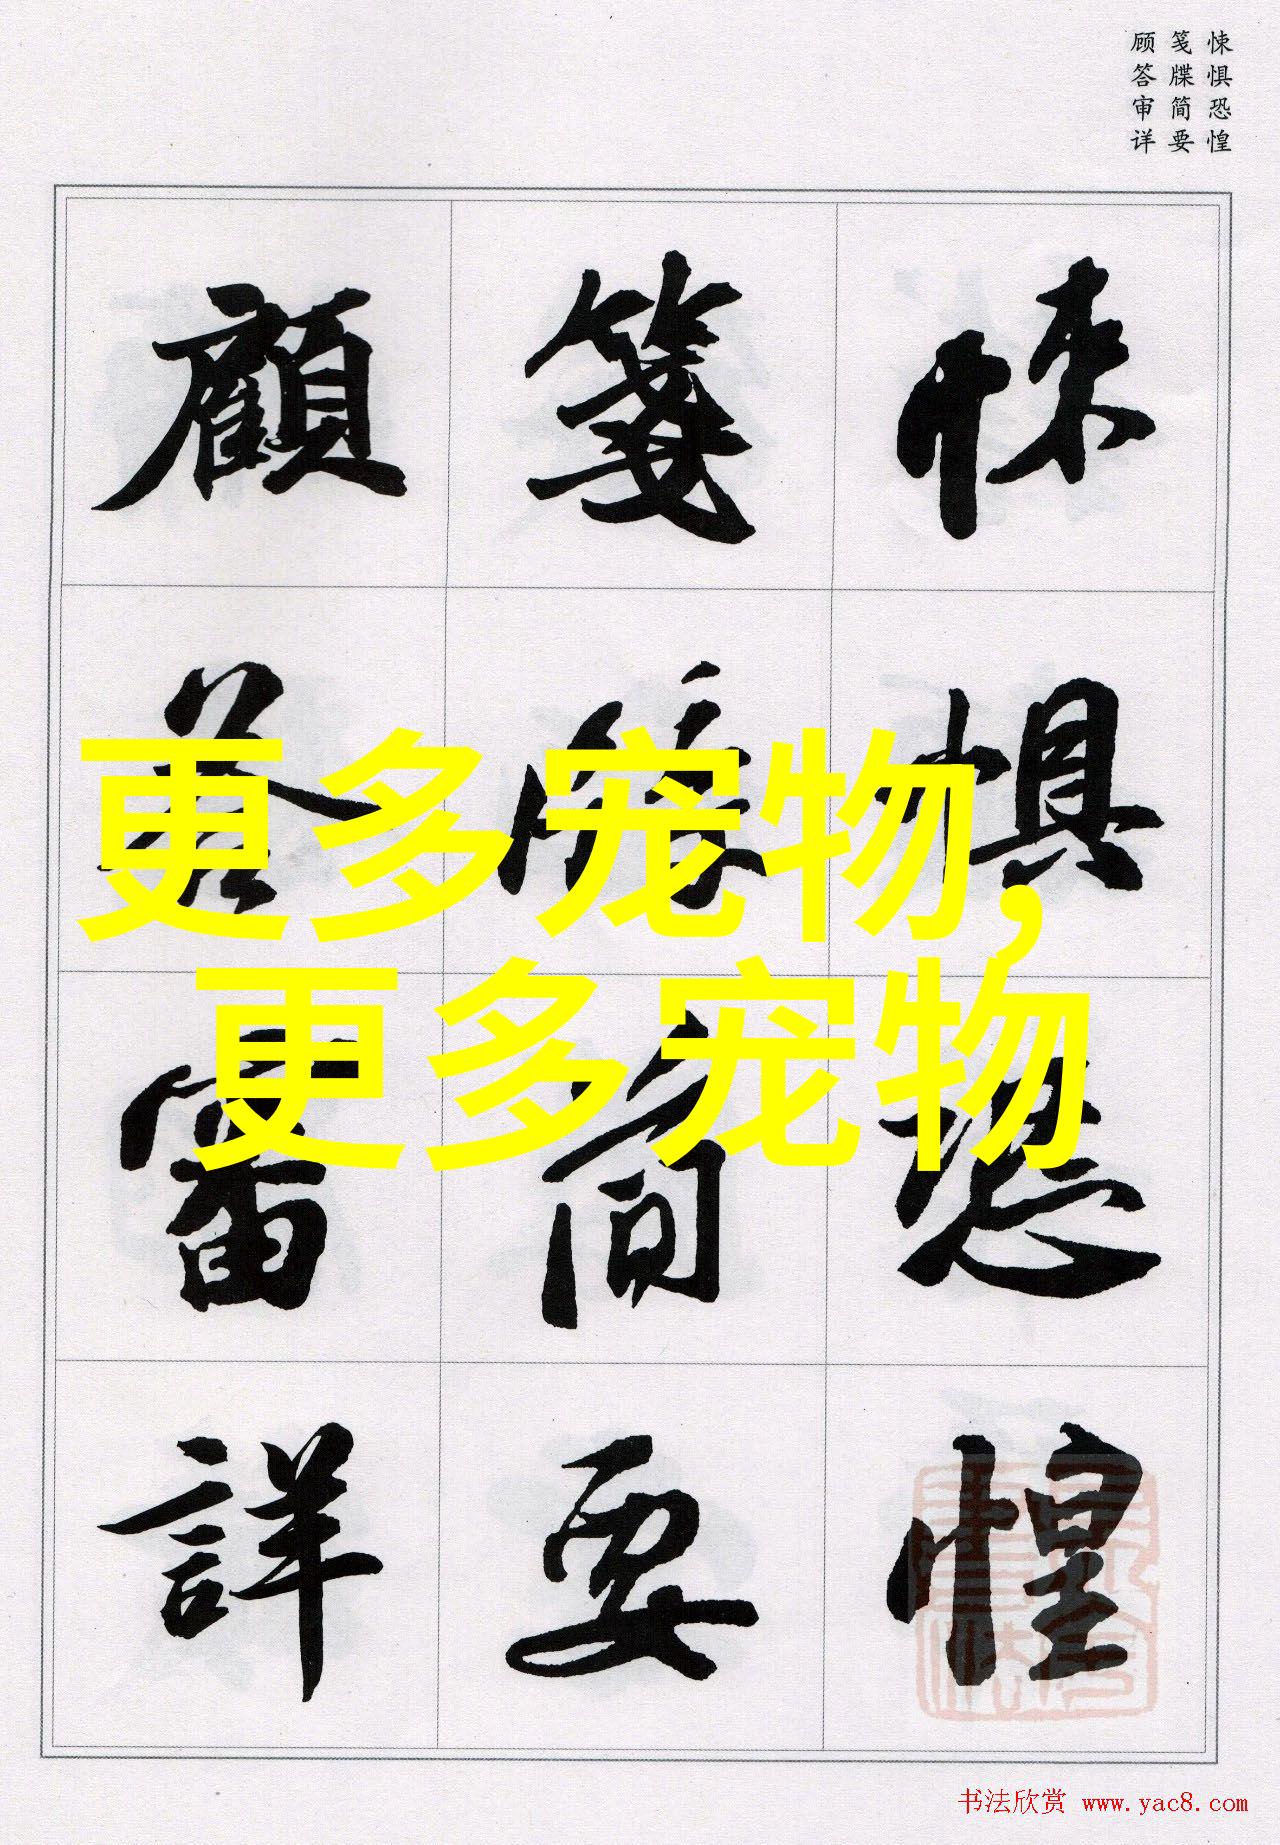 悚惧恐惶
笺牒简要
顾答审详
悚惧恐惶
箋牒簡要
顧答審詳
更多宠物,
更多宠物
书法欣赏 www.yac8.com